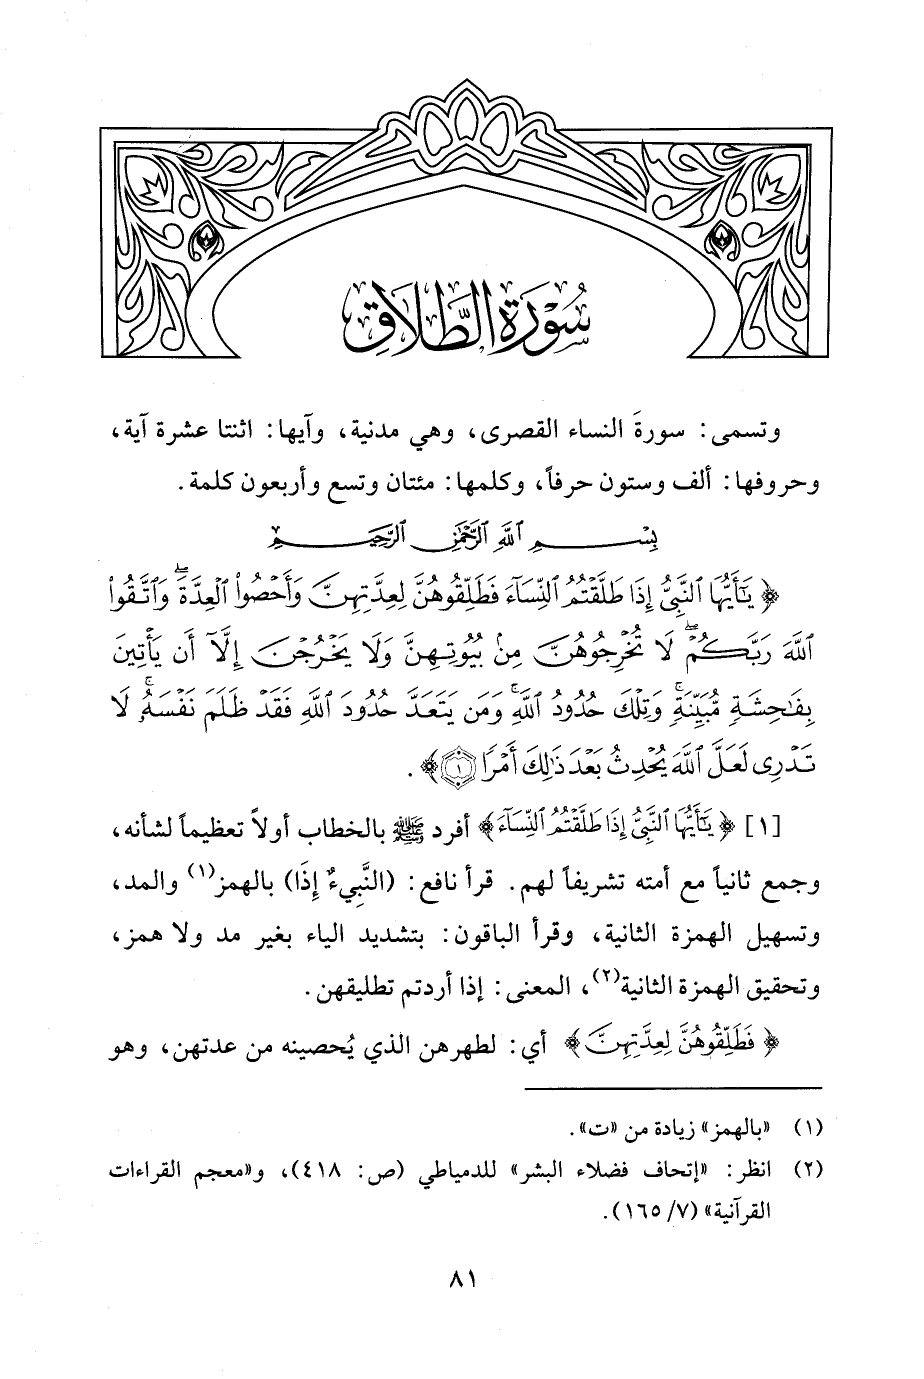 سُورَةُ الطَّلَاقِ
وتسمى: سورةَ النساء القصرى، وهي مدنية، وآيها: اثنتا عشرة آية،
وحروفها: ألف وستون حرفاً، وكلمها: مئتان وتسع وأربعون كلمة.
بِسْمِ ٱللَّهِ ٱلرَّحْمَٰنِ ٱلرَّحِيمِ
﴿يَٰٓأَيُّهَا ٱلنَّبِىُّ إِذَا طَلَّقْتُمُ ٱلنِّسَآءَ فَطَلِّقُوهُنَّ لِعِدَّتِهِنَّ وَأَحْصُوا۟ ٱلْعِدَّةَ ۖ وَٱتَّقُوا۟
ٱللَّهَ رَبَّكُمْ ۖ لَا تُخْرِجُوهُنَّ مِنۢ بُيُوتِهِنَّ وَلَا يَخْرُجْنَ إِلَّآ أَن يَأْتِينَ
بِفَٰحِشَةٍ مُّبَيِّنَةٍ ۚ وَتِلْكَ حُدُودُ ٱللَّهِ ۚ وَمَن يَتَعَدَّ حُدُودَ ٱللَّهِ فَقَدْ ظَلَمَ نَفْسَهُۥ ۚ لَا
تَدْرِى لَعَلَّ ٱللَّهَ يُحْدِثُ بَعْدَ ذَٰلِكَ أَمْرًا ١﴾.
[١] ﴿يَٰٓأَيُّهَا ٱلنَّبِىُّ إِذَا طَلَّقْتُمُ ٱلنِّسَآءَ﴾ أفرد ﷺ بالخطاب أولاً تعظيماً لشأنه،
وجمع ثانياً مع أمته تشريفاً لهم. قرأ نافع: (النَّبِيءُ إِذَا) بالهمز(١) والمد،
وتسهيل الهمزة الثانية، وقرأ الباقون: بتشديد الياء بغير مد ولا همز،
وتحقيق الهمزة الثانية(٢)، المعنى: إذا أردتم تطليقهن.
﴿فَطَلِّقُوهُنَّ لِعِدَّتِهِنَّ﴾ أي: لطهرهن الذي يُحصينه من عدتهن، وهو
(١) «بالهمز» زيادة من «ت».
(٢) انظر: «إتحاف فضلاء البشر» للدمياطي (ص: ٤١٨)، و«معجم القراءات
القرآنية» (٧/ ١٦٥).
٨١